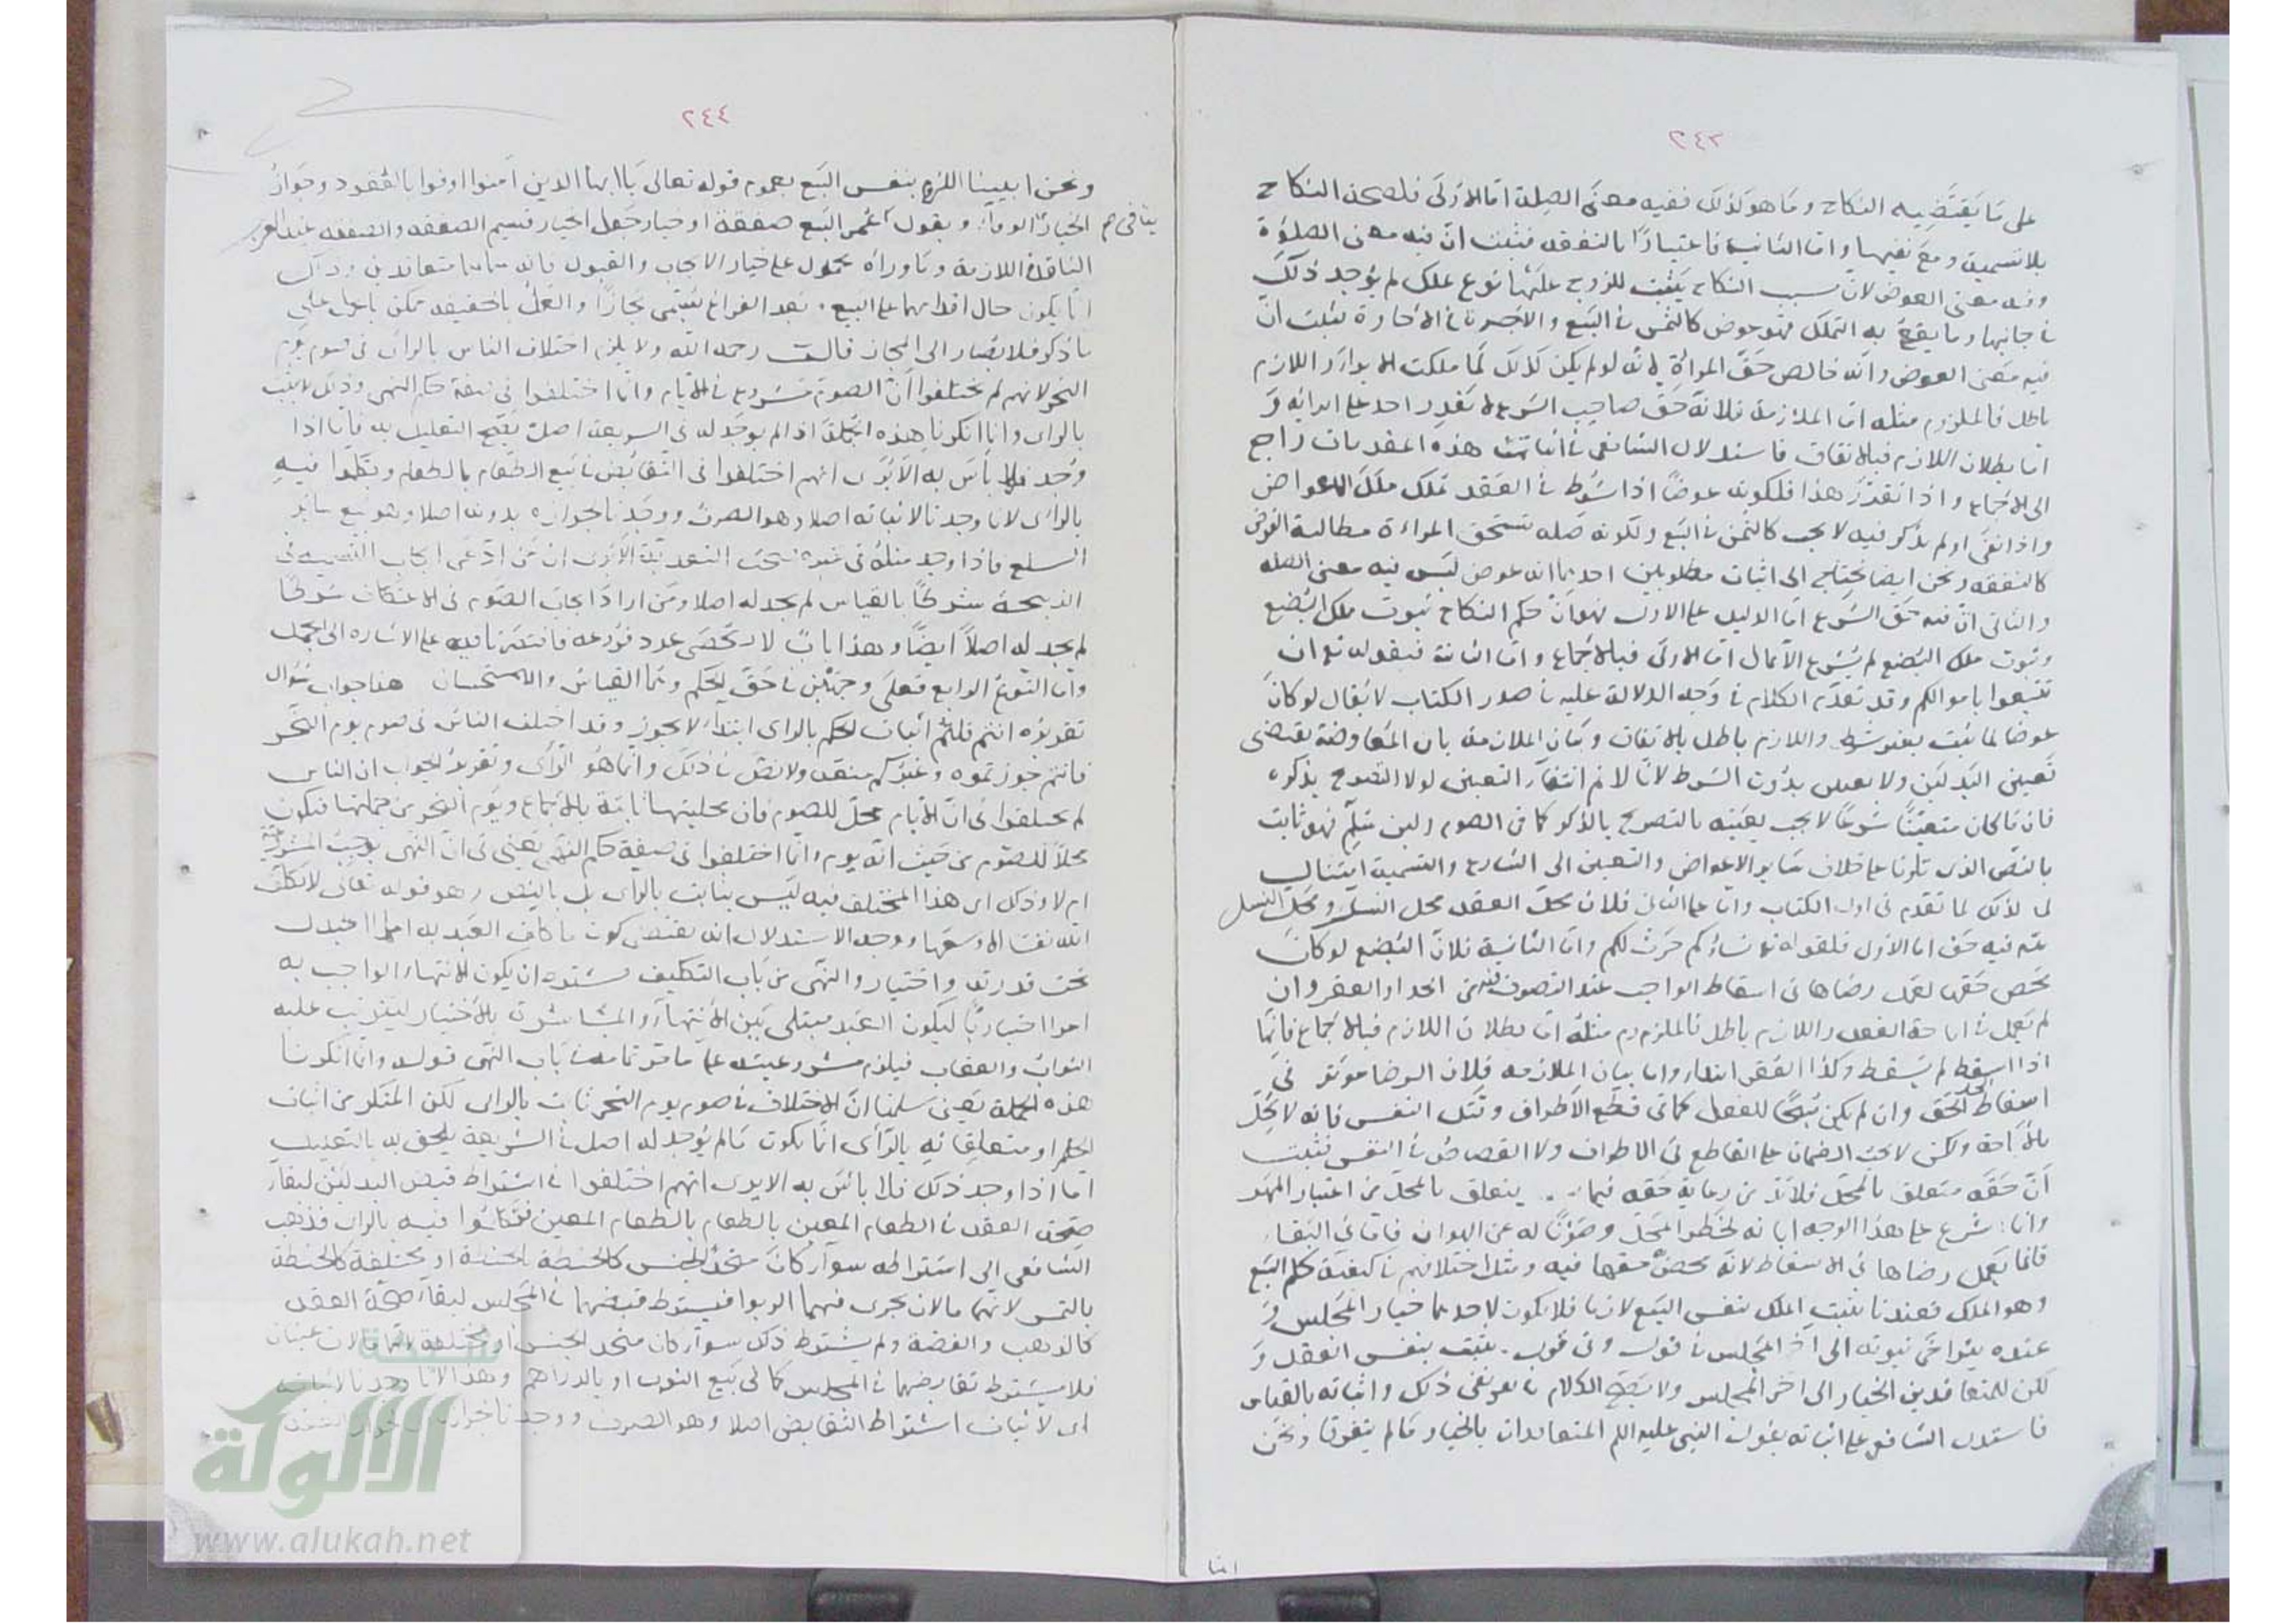 ٢٤٣
على ما يقتضيه النكاح وما هو كذلك ففيه معنى الصلة اما الاولى فلصحة النكاح
بلا تسمية ومع نفيها واما الثانية فاعتبارًا بالنفقة فثبت ان فيه معنى الصلة
وفيه معنى العوض لان بسبب النكاح يثبت للزوج عليها نوع ملك لم يوجد ذلك
في جانبها وما يقع به التملك فهو عوض كالثمن في البيع والاجرة في الاجارة فثبت ان
فيه معنى العوض وانه خالص حق المرأة لانه لو لم يكن كذلك لما ملكت الابراء واللازم
باطل فالملزوم مثله اما الملازمة فلانه حق صاحب الشرع لا يقدر احد على ابرائه و
اما بطلان اللازم فبالاتفاق فاستدلال الشافعي في اثبات هذه المقدمات راجع
الى الاجماع واذا تقرر هذا فلكونه عوضًا اذا شرط في العقد تملك ملك الاعواض
واذا نفى او لم يذكر فيه لا يجب كالثمن في البيع ولكونه صله تستحق المراءة مطالبة الفرض
كالنفقه ونحن ايضا نحتاج الى اثبات مطلوبين احديهما انه عوض ليس فيه معنى الصله
والثاني ان فيه حق الشرع اما الدليل على الاول فهو ان حكم النكاح ثبوت ملك البضع
وثبوت ملك البضع لم يشرع الا بمال اما الاولى فبالاجماع واما الثانية فبقوله تع ان
تبتغوا باموالكم وقد تقدم الكلام في وجه الدلالة عليه في صدر الكتاب لا يقال لو كان
عوضا لما ثبت بغير شرط واللازم باطل بالاتفاق وبيان الملازمة بان المعاوضة يقتضى
تعيين البدلين ولا تعيين بدون الشرط لانا لا نم انتفاء التعيين لولا التصريح بذكره
فان ما كان متعينًا شرعًا لا يجب تعينه بالتصريح بالذكر كما في الصوم ولين سلم فهو ثابت
بالنص الذي تلونا على خلاف سائر الاعواض والتعيين الى الشارع والتسمية امتثال
لما تقدم في اول الكتاب واما على الثاني فلان محل العقد محل النسل ومحل النسل
فيه حق اما الاول فلقوله تع نساؤكم حرث لكم واما الثانية فلان البضع لو كان
محض حقها لعمل رضاها في اسقاط الواجب عند التصرف فيه من الحد او العقر وان
لم يعمل في اباحة الفعل واللازم باطل فالملزوم مثله اما بطلان اللازم فبالاجماع فانها
اذا اسقط لم يسقط وكذا العقر ابتداء واما بيان الملازمه فلان الرضا موثر في
اسقاط الحق وان لم يكن مبيحًا للفعل كما في قطع الاطراف وقتل النفس فانه لا يحل
بالاباحة ولكن لا يجب الضمان على القاطع في الاطراف ولا القصاص في النفس فثبت
ان حقه متعلق بالمحل فلا بد من رعاية حقه فيما يتعلق بالمحل من اعتبار المهر
وانما شرع على هذا الوجه ابانه لخطر المحل وصونًا له عن الهوان فاما في البقاء
فانما يعمل رضاها في الاسقاط لانه محض حقها فيه ومثل اختلافهم في كيفية حكم البيع
وهو الملك فعندنا يثبت الملك بنفس البيع لازما فلا يكون لاحدهما خيار المجلس و
عنده يتراخى ثبوته الى اخر المجلس في قول وفي قول يثبت بنفس العقد و
لكن للمتعاقدين الخيار الى اخر المجلس ولا يصح الكلام في نفي ذلك واثباته بالقياس
فاستدل الشافعي على اثباته بقول النبي عليه السلم المتعاقدان بالخيار ما لم يتفرقا ونحن
اثبا
٢٤٤
ونحن اثبتنا اللزوم بنفس البيع بعموم قوله تعالى يا ايها الذين آمنوا اوفوا بالعقود وجواز
الخيار ينافي الوفاء وبقول عمر البيع صفقة او خيار جعل الخيار قسيم الصفقه والصفقه عند العرب
النافذة اللازمة وما وراءه محمول على خيار الايجاب والقبول فانه سماهما متعاقدين وذلك
انما يكون حال اقدامهما على البيع وبعد الفراغ يسمى مجازًا والعمل بالحقيقة ممكن بالحمل على
ما ذكر فلا يصار الى المجاز قالـ رحمه الله ولا يلزم اختلاف الناس بالراى في صوم يوم
النحر لانهم لم يختلفوا ان الصوم مشروع في الايام وانما اختلفوا في صفة حكم النهى وذلك لا يثبت
بالراى وانما انكرنا هذه الجملة اذا لم يوجد له في الشريعة اصل يصح التعليل به فاما اذا
وجد فلا بأس به الا يرى انهم اختلفوا في التقابض في بيع الطعام بالطعام وتكلموا فيه
بالراى لانا وجدنا لاثباته اصلا وهو الصرف ووجدنا لجوازه بدونه اصلا وهو بيع سائر
السلع فاذا وجد مثله في غيره صحت التعدية الا يرى ان من ادعى ايجاب التسمية في
الذبيحة شرطًا بالقياس لم يجد له اصلا ومن اراد ايجاب الصوم في الاعتكاف شرطًا
لم يجد له اصلاً ايضًا وهذا باب لا يحصى عدد فروعه فاقتصرنا فيه على الاشاره الى الجمل
واما النوع الرابع فعلى وجهين في حق الحكم وهما القياس والاستحسان هذا جواب سؤال
تقريره انتم قلتم اثبات الحكم بالراى ابتداء لا يجوز وقد اختلف الناس في صوم يوم النحر
فانتم جوزتموه وغيركم منعه ولا نص في ذلك وانما هو الرأى وتقرير الجواب ان الناس
لم يختلفوا في ان الايام محل للصوم فان محليتها ثابتة بالاجماع ويوم النحر من جملتها فيكون
محلاً للصوم من حيث انه يوم وانما اختلفوا في صفة حكم النهى يعني في ان النهى يوجب المشروعية
ام لا وذلك اى هذا المختلف فيه ليس بثابت بالراى بل بالنص وهو قوله تعالى لا يكلف
الله نفسًا الا وسعها ووجه الاستدلال انه يقتضى كون ما كلف العبد به امرا داخلا
تحت قدرته واختياره والنهى من باب التكليف فيستدعى ان يكون الانتهاء الواجب به
امرا اختياريًا ليكون العبد مبتلى بين الانتهاء والمباشرة بالاختيار ليترتب عليه
الثواب والعقاب فيلزم مشروعيته على ما مر تمامه في باب النهى قوله وانما انكرنا
هذه الجملة يعني سلمنا ان الاختلاف في صوم يوم النحر ثابت بالراى لكن المنكر من اثبات
الحكم او متعلقاته بالرأى انما يكون ما لم يوجد له اصل في الشريعة يلحق به بالتعليل
اما اذا وجد ذلك فلا بأس به الا يرى انهم اختلفوا في اشتراط قبض البدلين لبقاء
صحة العقد في الطعام المعين بالطعام المعين فتكلموا فيه بالراى فذهب
الشافعي الى اشتراطه سواء كان متحد الجنس كالحنطة بالحنطة او مختلفة كالحنطة
بالتمر لانهما مالان يجرى فيهما الربوا فيشترط قبضهما في المجلس لبقاء صحة العقد
كالذهب والفضة ولم يشترط ذلك سواء كان متحد الجنس او مختلفة لانهما مالان عينان
فلا يشترط تقابضهما في المجلس كما في بيع الثوب او بالدراهم وهذا لانا وجدنا لاثباته
اى لاثبات اشتراط التقابض اصلا وهو الصرف ووجدنا لجوازه
شبكة
الألوكة
www.alukah.net